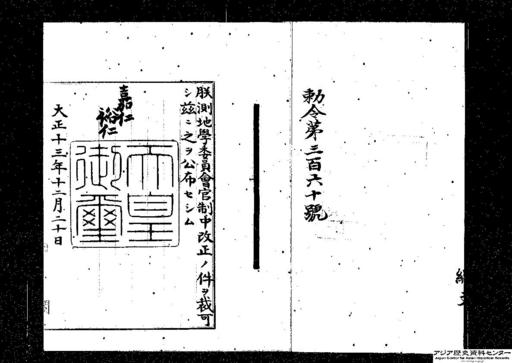 勅令第三百六十號
朕測地學委員會官制中改正ノ件ヲ裁可
シ茲ニ之ヲ公布セシム
嘉仁
裕仁
天皇御璽
大正十三年十二月二十日
アジア歴史資料センター
Japan Center for Asian Historical Records